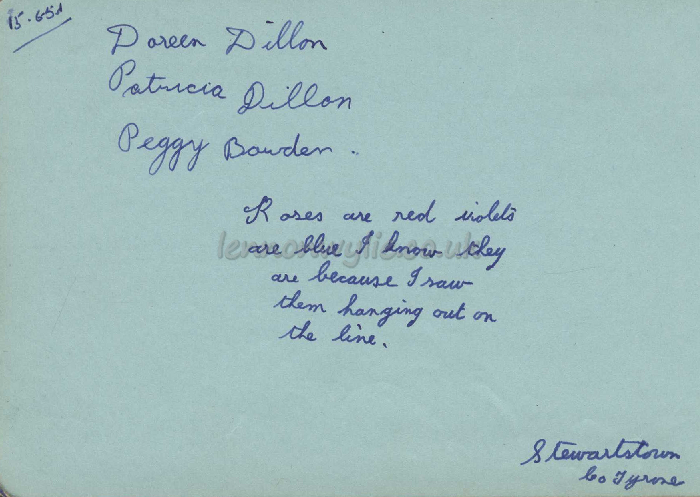 15.6.51
Doreen Dillon
Patricia Dillon
Peggy Bowden.
Roses are red violets
are blue I know they
are because I saw
them hanging out on
the line.
lennonwylie.co.uk
Stewartstown
Co Tyrone